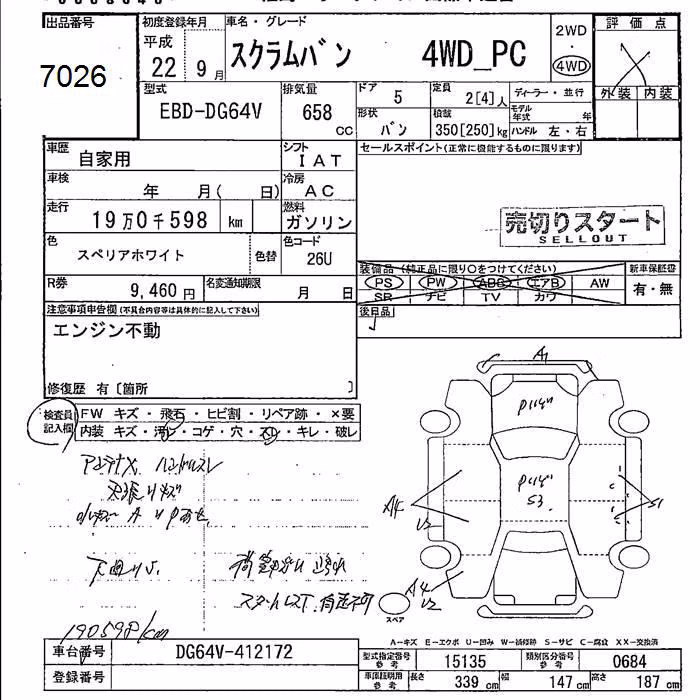 出品番号
7026
初度登録年月
平成
22 9月
車名・グレード
スクラムバン 4WD_PC
2WD
・
4WD
評価点
外装 内装
型式
EBD-DG64V
排気量
658 CC
ドア
5
定員
2[4]人
ディーラー・並行
形状
バン
積載
350[250]kg
モデル年式 年
ハンドル 左・右
車歴
自家用
シフト
IAT
セールスポイント(正常に機能するものに限ります)
車検
年 月( 日)
冷房
AC
走行
19万0千598 km
燃料
ガソリン
売切りスタート
SELLOUT
色
スペリアホワイト 色替
色コード
26U
装備品 (純正品に限り○をつけてください)
PS PW ABS エアB AW
SR ナビ TV カワ
新車保証書
有・無
R券
9,460円
名変通知期限
月 日
後日品
注意事項申告欄(不具合内容等は具体的に記入して下さい)
エンジン不動
修復歴 有〔箇所 〕
検査員記入欄
FW キズ・飛石・ヒビ割・リペア跡・×要
内装 キズ・汚レ・コゲ・穴・スレ・キレ・破レ
A1
アンテナX ハンドルスレ
天張りキズ
小キズ A U Pあせ
P
P
S3
A4
U2
S1
下廻りS
A4
U2
スペア
190598km
A-キズ E-エクボ U-凹み W-補修跡 S-サビ C-腐食 XX-交換済
車台番号
DG64V-412172
登録番号
型式指定番号参考
15135
類別区分番号参考
0684
車庫証明用参考
長さ
339cm
幅
147cm
高さ
187cm